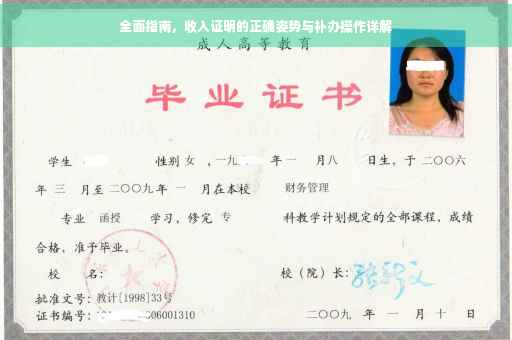 全面指南，收入证明的正确姿势与补办操作详解
成人高等教育
毕业证书
学生 性别 女 ，一九 年 一 月 八 日生，于 二〇〇六
年 三 月至 二〇〇九 年 一 月在本校 财务管理
专业 函授 学习，修完 专 科教学计划规定的全部课程，成绩
合格，准予毕业。
校 名： 校（院）长：
批准文号：教计[1998]33号
证书编号： 06001310 二〇〇九 年 一 月 十 日